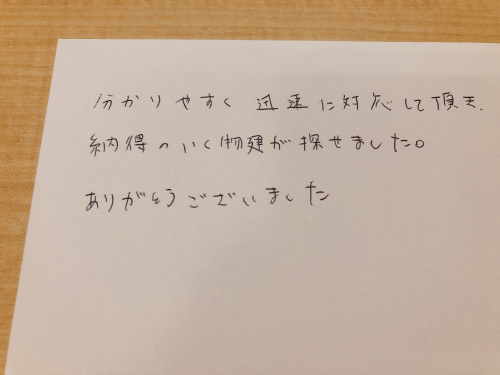 分かりやすく 迅速に対応して頂き、
納得のいく物件が探せました。
ありがとうございました